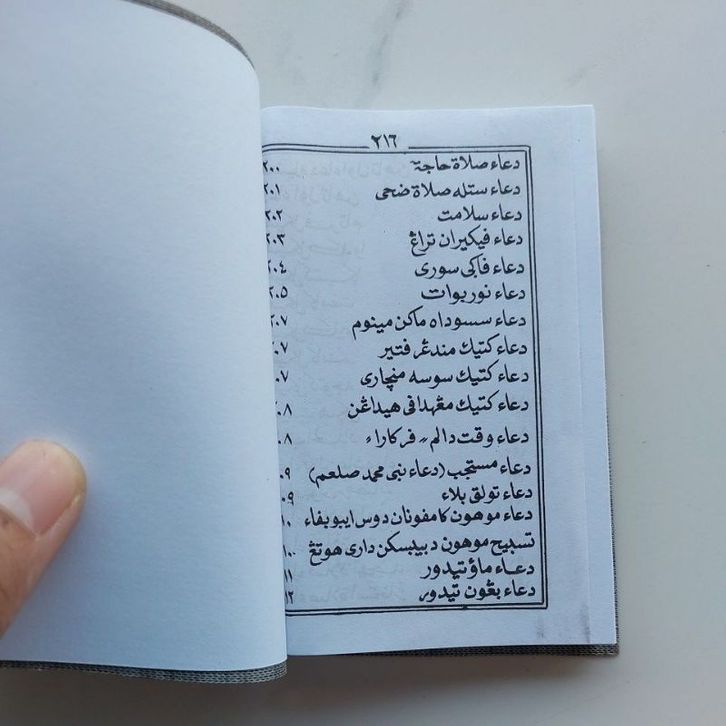 ٢١٦
دعاء صلاة حاجة ٢٠٠
دعاء ستله صلاة ضحى ٢٠١
دعاء سلامت ٢٠٢
دعاء فيكيران تراڠ ٢٠٣
دعاء فاكى سورى ٢٠٤
دعاء نوربوات ٢٠٥
دعاء سسوداه ماكن مينوم ٢٠٧
دعاء كتيك مندڠر فتير ٠٧
دعاء كتيك سوسه منچارى ٠٧
دعاء كتيك مڠهدافى هيداڠن ٠٨
دعاء وقت دالم٢ فركاراء ٠٨
دعاء مستجب (دعاء نبى محمد صلعم) ٠٩
دعاء تولق بلاء ٠٩
دعاء موهون كامفونان دوس ايبو بفاء ١٠
تسبيح موهون دبيبسكن دارى هوتڠ ١٠
دعاء ماؤ تيدور ١١
دعاء بڠون تيدور ١٢